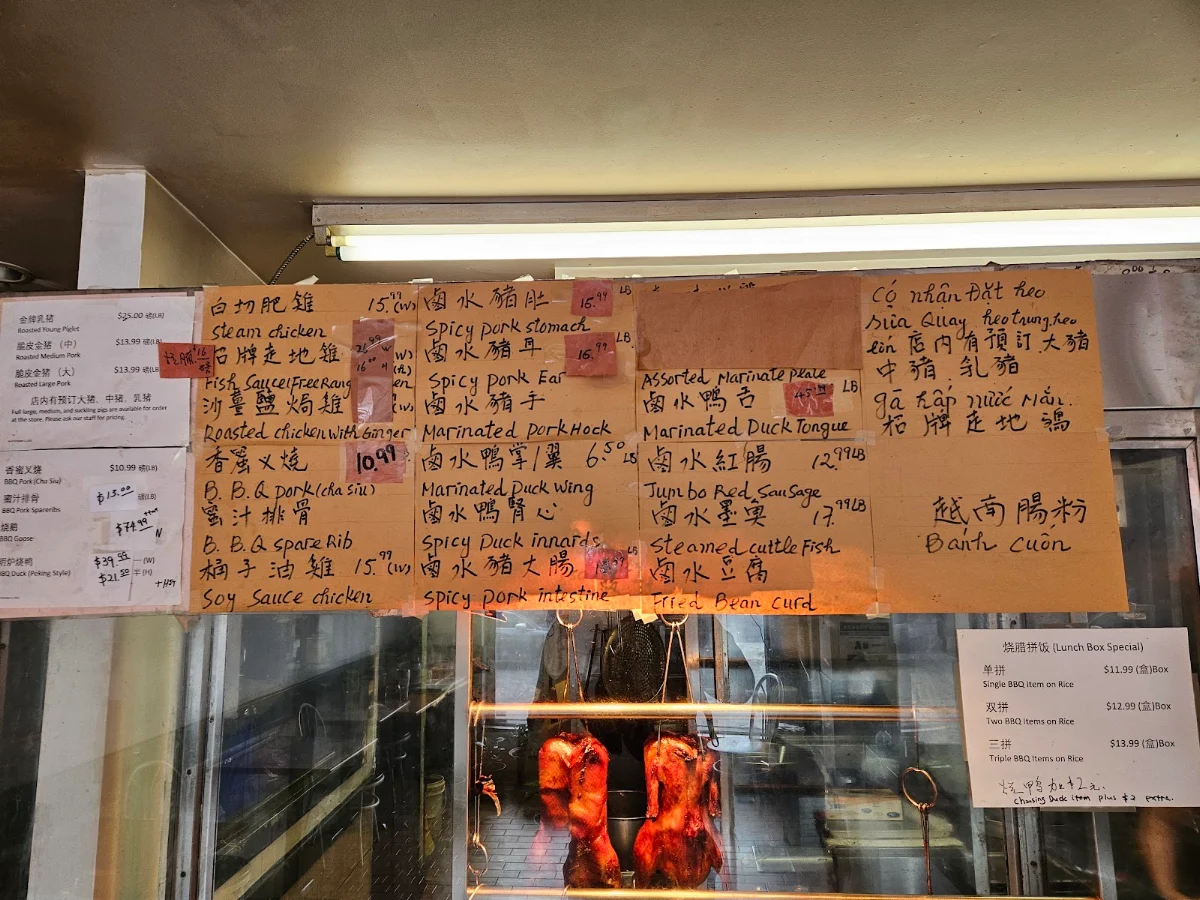 金牌乳猪 $25.00 磅(LB)
Roasted Young Piglet
脆皮金猪 (中) $13.99 磅(LB)
Roasted Medium Pork
脆皮金猪 (大) $13.99 磅(LB)
Roasted Large Pork
店内有预订大猪、中猪、乳猪
Full large, medium, and suckling pigs are available for order
at the store. Please ask our staff for pricing.
香蜜叉烧 $10.99 磅(LB)
BBQ Pork (Cha Siu)
蜜汁排骨 $13.00 磅(LB)
BBQ Pork Spareribs
烧鹅 $74.99
BBQ Goose
明炉烧鸭 $39.99 一(W)
BBQ Duck (Peking Style) $21.50 半(H)
+HST
白切肥雞 15.99(W)
Steam chicken
招牌走地雞
Fish Sauce (Free Rang
沙薑鹽焗雞
Roasted chicken With Ginger
香蜜义燒 10.99
B.B.Q pork (cha siu)
蜜汁排骨
B.B.Q spare Rib
油雞 15.99(W)
Soy Sauce chicken
鹵水豬肚 15.99 LB
Spicy pork stomach
鹵水豬耳 16.99 LB
Spicy pork Ear
鹵水豬手
Marinated pork Hock
鹵水鴨掌/翼 6.50 LB
Marinated Duck Wing
鹵水鴨腎心
Spicy Duck innards
鹵水豬大腸 LB
Spicy pork intestine
Assorted Marinate plate
鹵水鴨舌 45.99 LB
Marinated Duck Tongue
鹵水紅腸 12.99 LB
Jumbo Red Sausage
鹵水墨奥 17.99 LB
Steamed cuttle Fish
鹵水豆腐
Fried Bean curd
Có nhân Đặt heo
sữa Quay heo trung, heo
lớn 店内有預訂大豬
中豬 乳豬
gà hấp nước mắn.
招牌走地鷄
越南腸粉
Bánh cuôn
烧腊拼饭 (Lunch Box Special)
单拼 $11.99 (盒)Box
Single BBQ Item on Rice
双拼 $12.99 (盒)Box
Two BBQ Items on Rice
三拼 $13.99 (盒)Box
Triple BBQ Items on Rice
烧鴨加$2元.
chousing Duck item plus $2 extra.